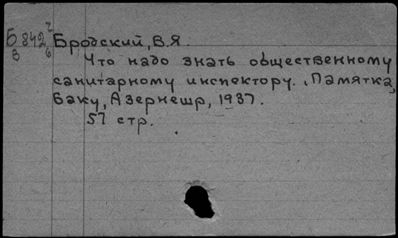 Б842 Бродский, В.Я.
Что надо знать общественному
санитарному инспектору. Памятка,
Баку, Азернешр, 1937.
57 стр.